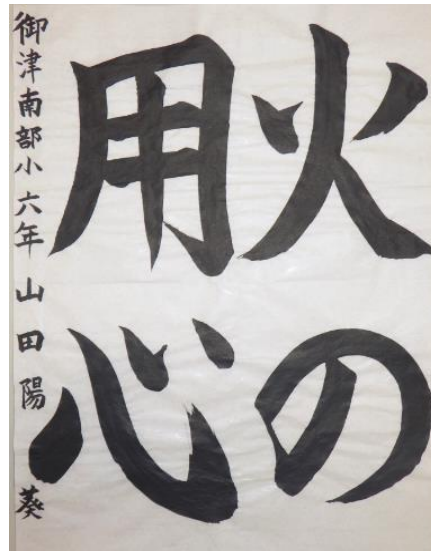 火の
用心
御津南部小六年 山田陽葵